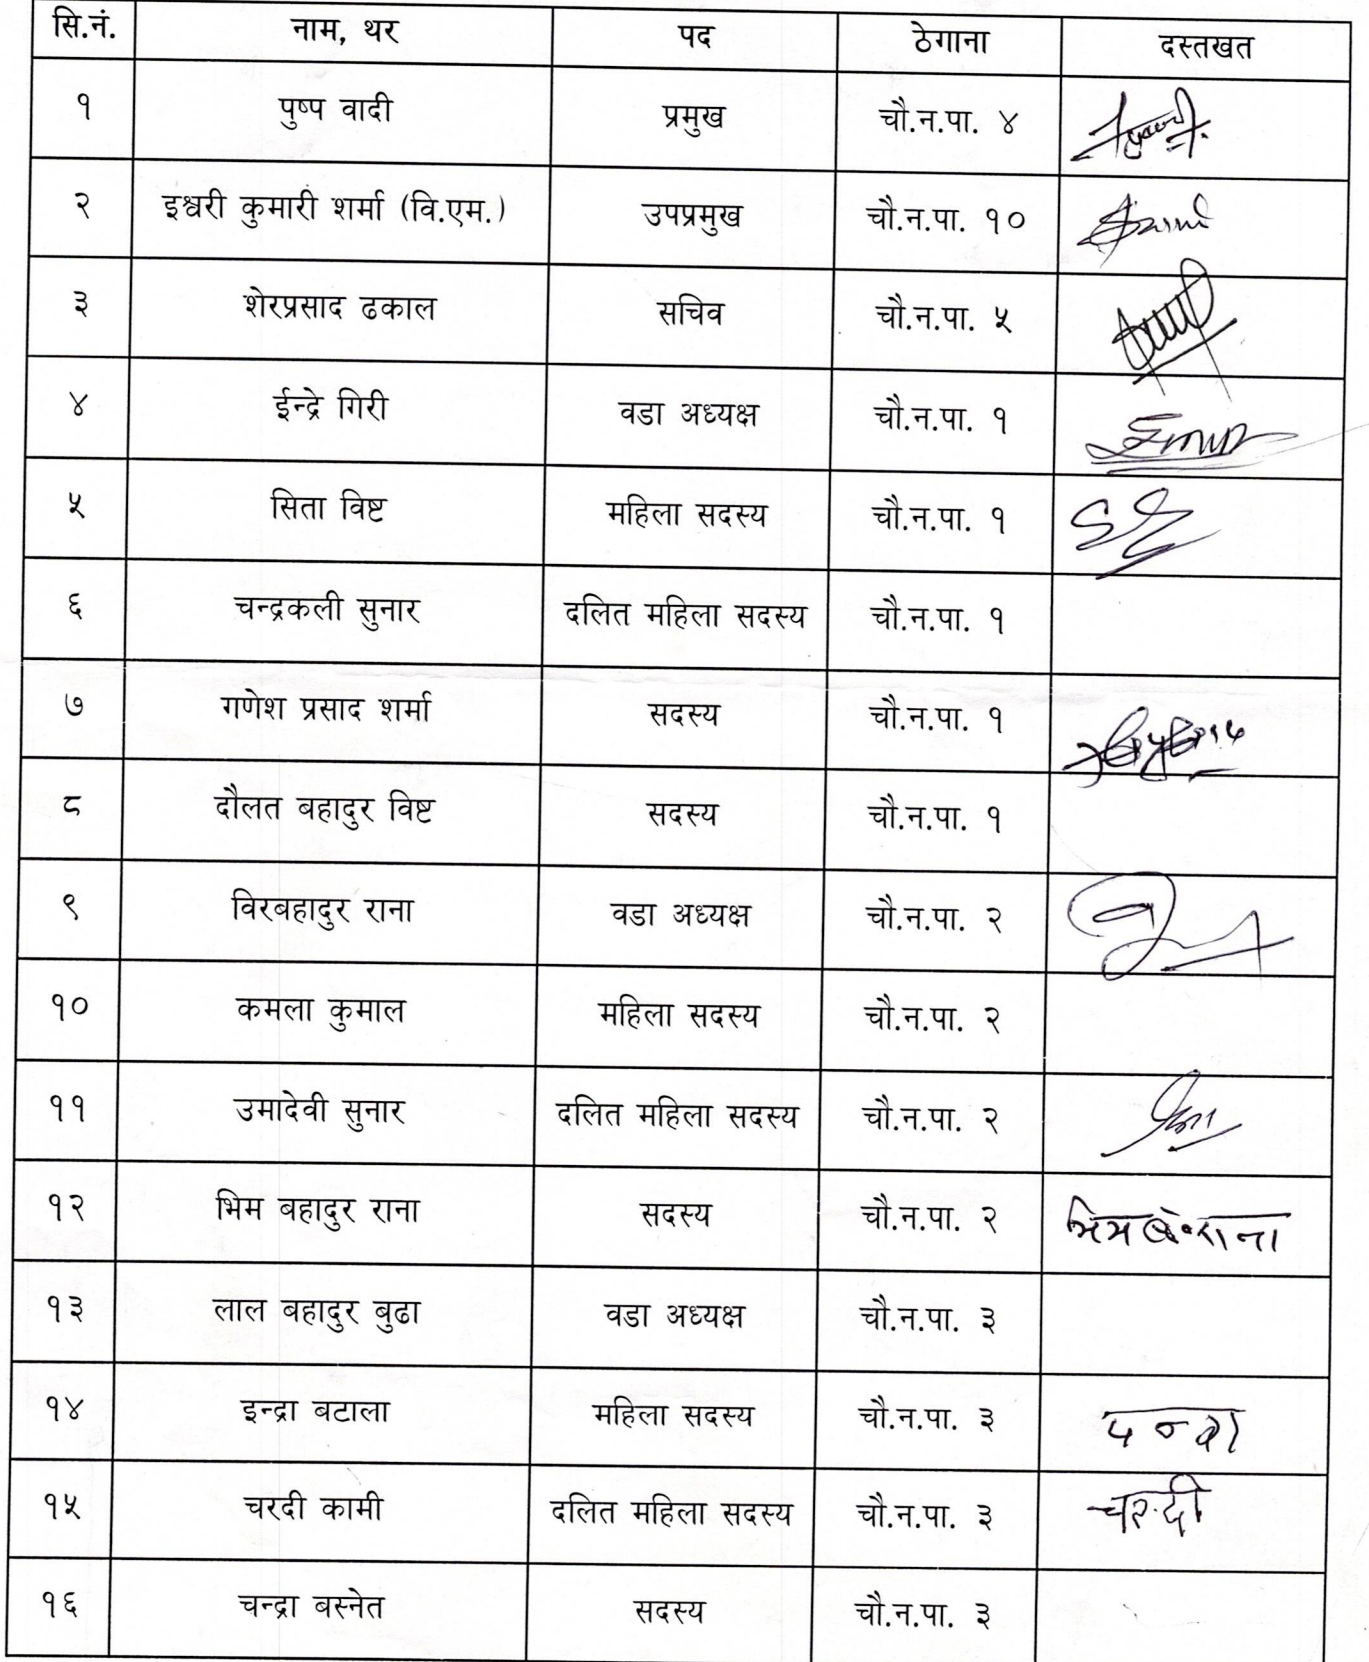 सि.नं. नाम, थर पद ठेगाना दस्तखत
१ पुष्प वादी प्रमुख चौ.न.पा. ४
२ इश्वरी कुमारी शर्मा (वि.एम.) उपप्रमुख चौ.न.पा. १०
३ शेरप्रसाद ढकाल सचिव चौ.न.पा. ५
४ ईन्द्रे गिरी वडा अध्यक्ष चौ.न.पा. १
५ सिता विष्ट महिला सदस्य चौ.न.पा. १
६ चन्द्रकली सुनार दलित महिला सदस्य चौ.न.पा. १
७ गणेश प्रसाद शर्मा सदस्य चौ.न.पा. १
८ दौलत बहादुर विष्ट सदस्य चौ.न.पा. १
९ विरबहादुर राना वडा अध्यक्ष चौ.न.पा. २
१० कमला कुमाल महिला सदस्य चौ.न.पा. २
११ उमादेवी सुनार दलित महिला सदस्य चौ.न.पा. २
१२ भिम बहादुर राना सदस्य चौ.न.पा. २ भिम ब. राना
१३ लाल बहादुर बुढा वडा अध्यक्ष चौ.न.पा. ३
१४ इन्द्रा बटाला महिला सदस्य चौ.न.पा. ३
१५ चरदी कामी दलित महिला सदस्य चौ.न.पा. ३ चरदी
१६ चन्द्रा बस्नेत सदस्य चौ.न.पा. ३